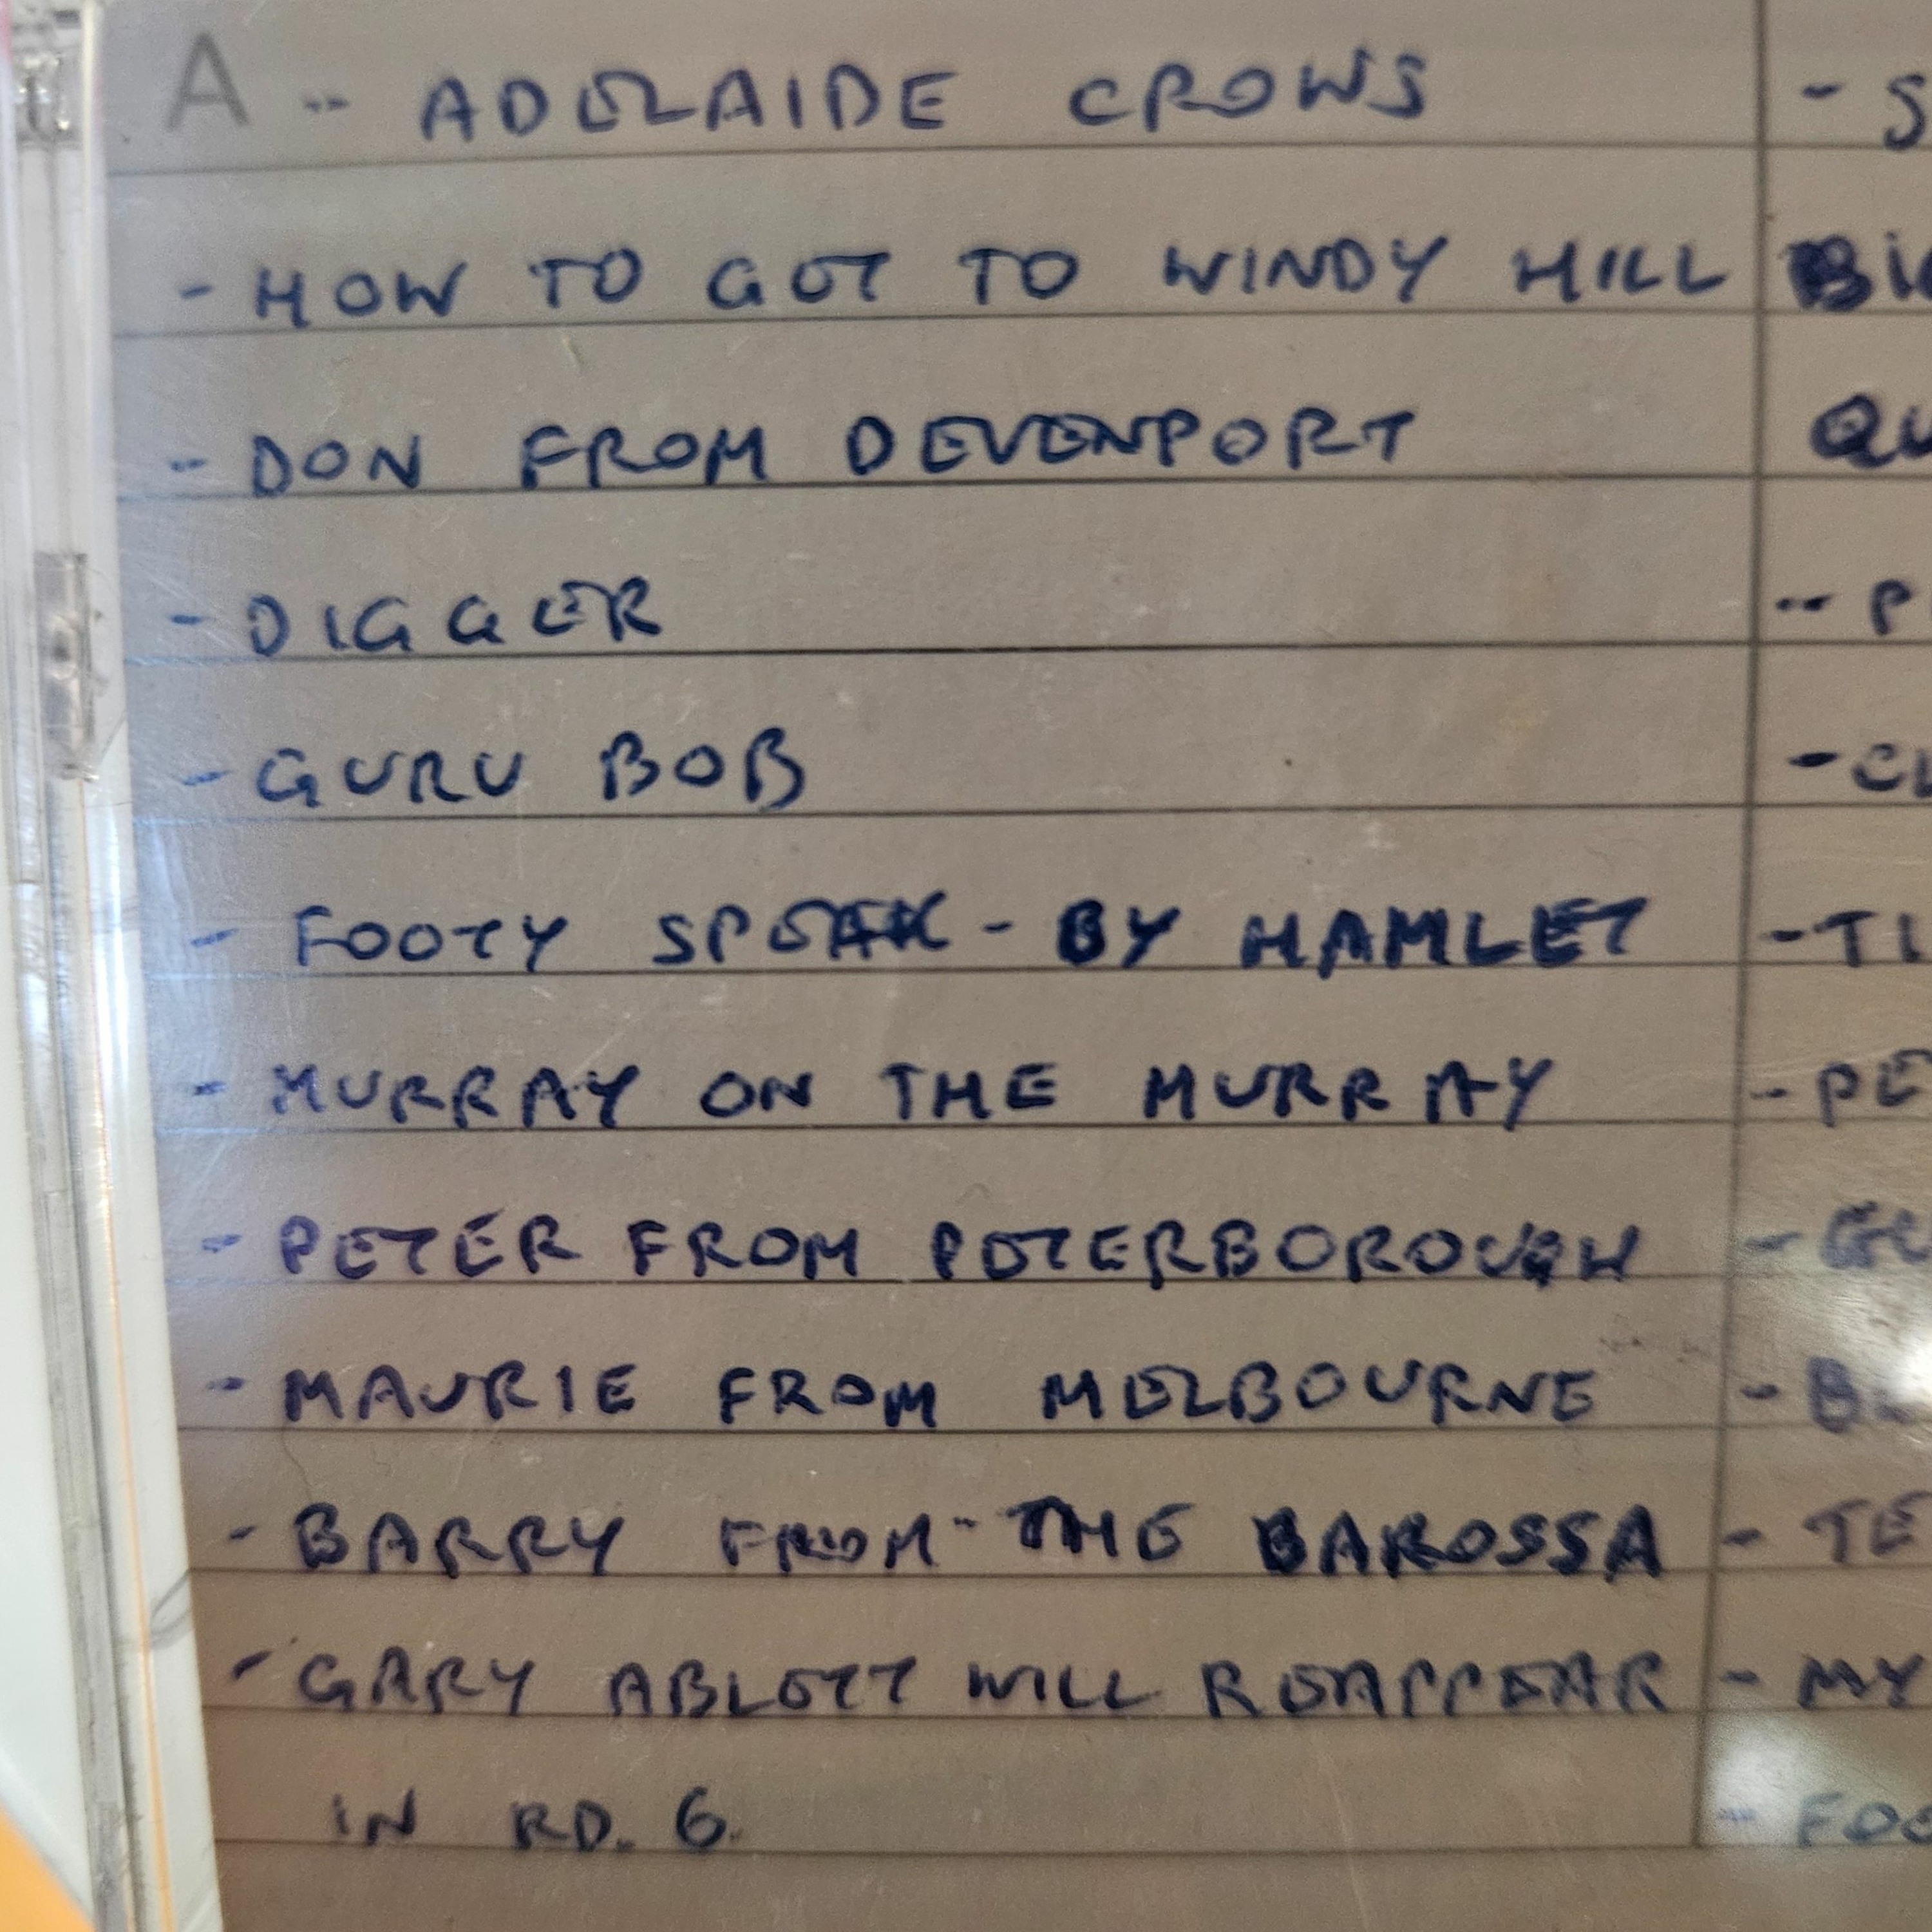 A -- ADELAIDE CROWS
- HOW TO GET TO WINDY HILL
-- DON FROM DEVENPORT
- DIGGER
- GURU BOB
- FOOTY SPEAK - BY HAMLET
- MURRAY ON THE MURRAY
- PETER FROM PETERBOROUGH
- MAURIE FROM MELBOURNE
- BARRY FROM - THE BAROSSA
- GARY ABLETT WILL REAPPEAR
IN RD. 6.
- MY